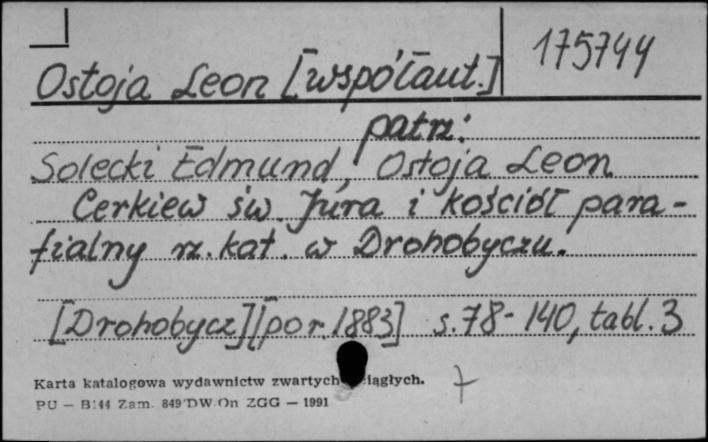 Ostoja Leon [współaut.]
175744
patrz:
Solecki Edmund, Ostoja Leon
Cerkiew św. Jura i kościół para-
fialny rz. kat. w Drohobyczu.
[Drohobycz] [por. 1883] s. 78-140, tabl. 3
Karta katalogowa wydawnictw zwartych ciągłych.
PU — B144 Zam. 849 DW On ZGG — 1991